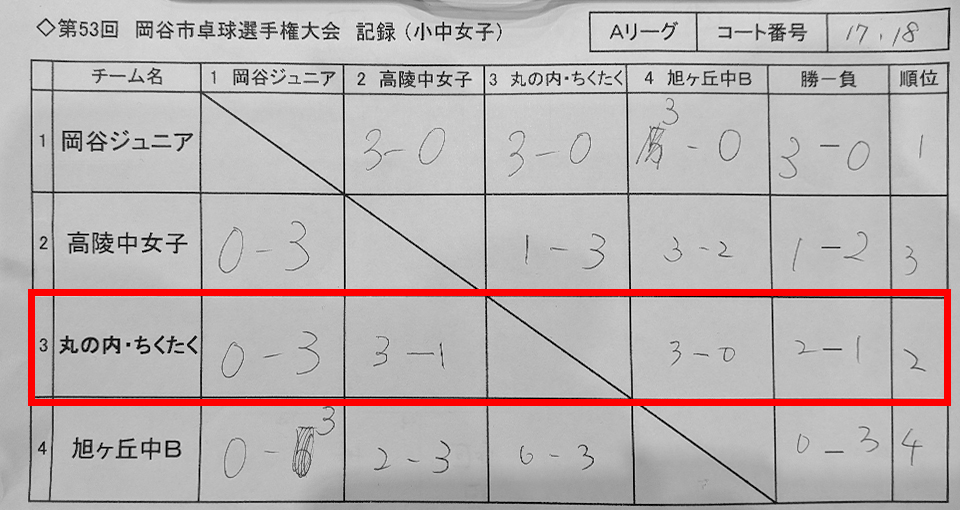 ◇第53回 岡谷市卓球選手権大会 記録（小中女子） Aリーグ コート番号 17.18
チーム名 1 岡谷ジュニア 2 高陵中女子 3 丸の内・ちくたく 4 旭ヶ丘中B 勝ー負 順位
1 岡谷ジュニア 3-0 3-0 3-0 3-0 1
2 高陵中女子 0-3 1-3 3-2 1-2 3
3 丸の内・ちくたく 0-3 3-1 3-0 2-1 2
4 旭ヶ丘中B 0-3 2-3 0-3 0-3 4